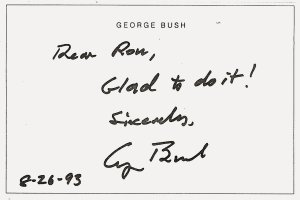 GEORGE BUSH
Dear Ron,
Glad to do it!
Sincerely,
G Bush
8-26-93